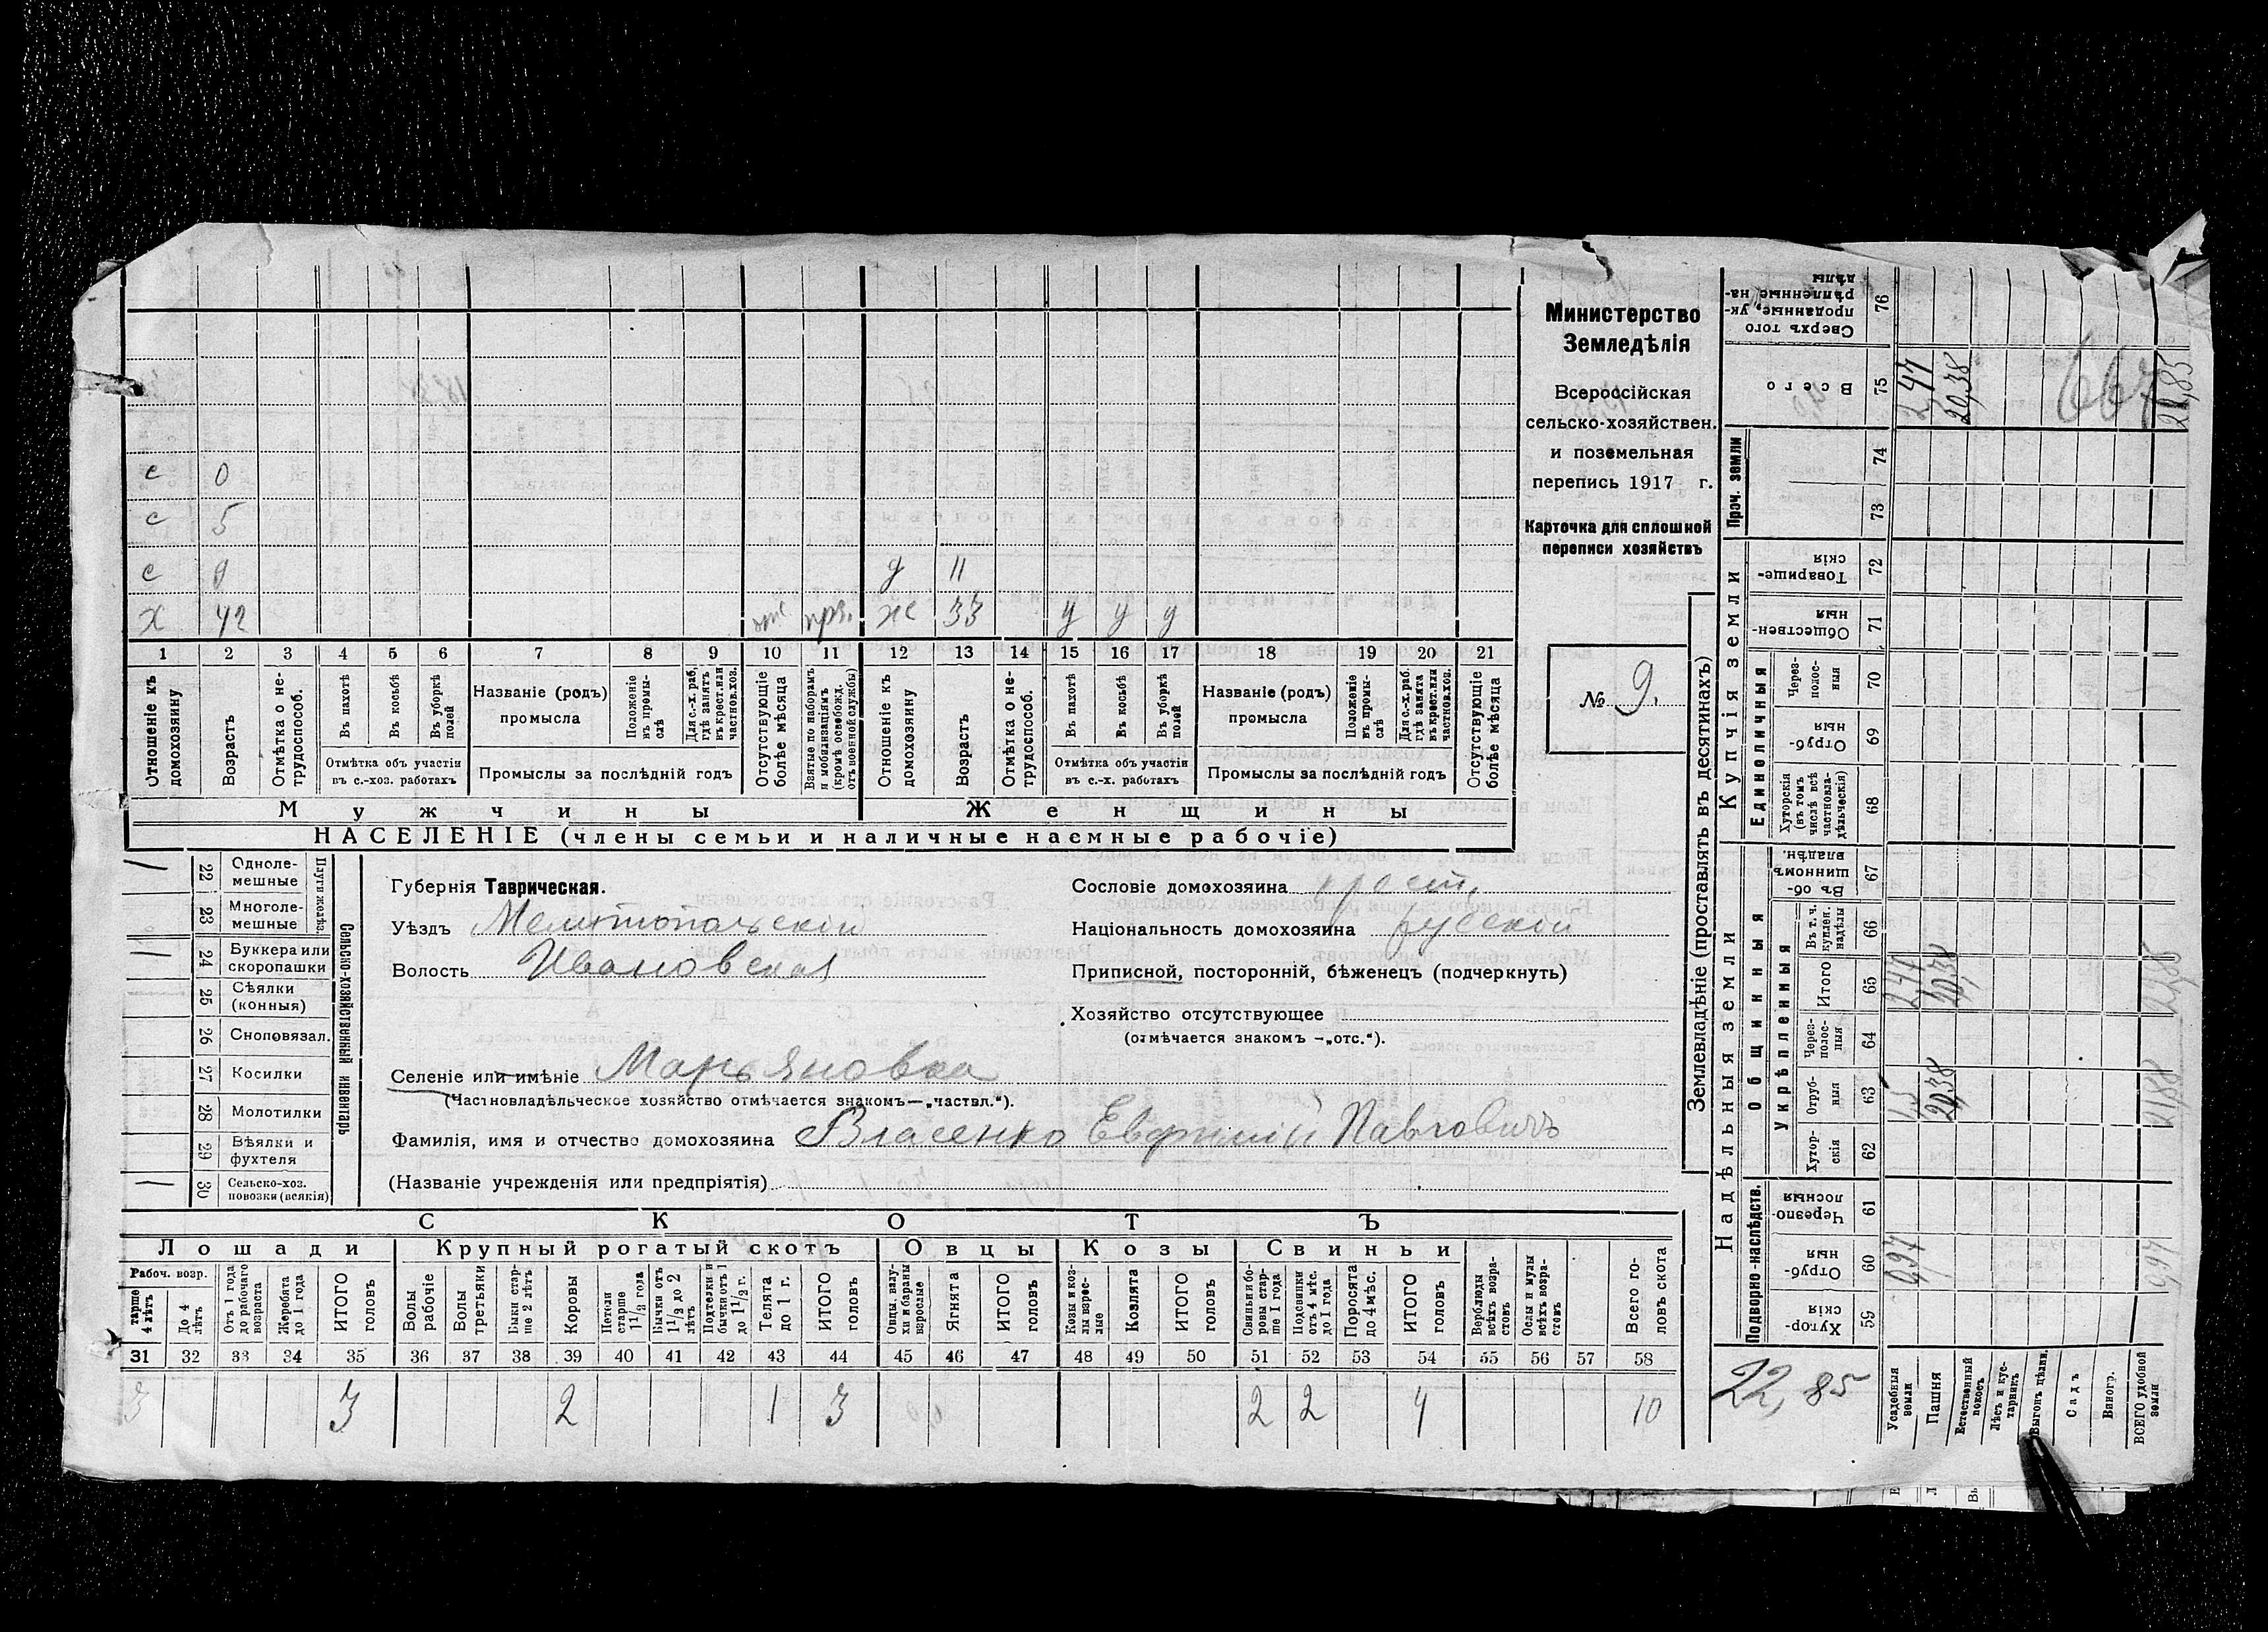 с 0
с 5
с 9 д 11
х 42 отс. ж 33 у у у
1 2 3 4 5 6 7 8 9 10 11 12 13 14 15 16 17 18 19 20 21
Отношеніе къ домохозяину
Возрастъ
Отмѣтка о не-трудоспособ.
Въ пахотѣ
Въ косьбѣ
Въ уборкѣ полей
Отмѣтка объ участіи въ с.-хоз. работахъ
Названіе (родъ) промысла
Положеніе въ промы-слѣ
Для с.-х. раб, гдѣ занятъ въ крест. или частнов. хоз.
Промыслы за послѣдній годъ
Отсутствующіе болѣе мѣсяца
Взятые по наборамъ и мобилизаціямъ (кромѣ освобожд. отъ военной службы)
Отношеніе къ домохозяину
Возрастъ
Отмѣтка о не-трудоспособ.
Въ пахотѣ
Въ косьбѣ
Въ уборкѣ полей
Отмѣтка объ участіи въ с.-х. работахъ
Названіе (родъ) промысла
Положеніе въ промы-слѣ
Для с.-х. раб. гдѣ занята въ крест. или частнов. хоз.
Промыслы за послѣдній годъ
Отсутствующіе болѣе мѣсяца
Мужчины Женщины
НАСЕЛЕНІЕ (члены семьи и наличные наемные рабочіе)
Министерство
Земледѣлія
Всероссійская
сельско-хозяйствен.
и поземельная
перепись 1917 г.
Карточка для сплошной
переписи хозяйствъ
№ 9.
22 Однолемешные
23 Многолемешные
Плуги желѣз.
24 Буккера или скоропашки
25 Сѣялки (конныя)
26 Сноповязал.
27 Косилки
28 Молотилки
29 Вѣялки и фухтеля
30 Сельско-хоз. повозки (всякія)
Сельско-хозяйственный инвентарь
Губернія Таврическая.
Уѣздъ Мелитопольскій
Волость Ивановская
Сословіе домохозяина крест.
Національность домохозяина русскій
Приписной, посторонній, бѣженецъ (подчеркнуть)
Хозяйство отсутствующее
(отмѣчается знакомъ -„отс.“).
Селеніе или имѣніе Марьяновка
(Частновладѣльческое хозяйство отмѣчается знакомъ—„частвл.“).
Фамилія, имя и отчество домохозяина Власенко Евфимій Павловичъ
(Названіе учрежденія или предпріятія)
СКОТЪ
Лошади Крупный рогатый скотъ Овцы Козы Свиньи
Рабоч. возр.
старше 4 лѣтъ
До 4 лѣтъ
Отъ 1 года до рабочаго возраста
Жеребята до 1 года
ИТОГО головъ
Волы рабочіе
Волы третьяки
Быки стар-ше 2 лѣтъ
Коровы
Нетели старше 1 1/2 года
Бычки отъ 1 1/2 до 2 лѣтъ
Подтелки и бычки отъ 1 до 1 1/2 г.
Телята до 1 г.
ИТОГО головъ
Овцы, валу-хи и бараны взрослые
Ягнята
ИТОГО головъ
Козы и коз-лы взрос-лые
Козлята
ИТОГО головъ
Свиньи и бо-ровы стар-ше 1 года
Подсвинки отъ 4 мѣс. до 1 года
Поросята до 4 мѣс.
ИТОГО головъ
Верблюды всѣхъ возра-стовъ
Ослы и мулы всѣхъ возра-стовъ
Всего го-ловъ скота
31 32 33 34 35 36 37 38 39 40 41 42 43 44 45 46 47 48 49 50 51 52 53 54 55 56 57 58
3 3 2 1 3 2 2 4 10
Землевладѣніе (проставлять въ десятинахъ)
Сверхъ того проданные, ук-рѣпленные на-дѣлы 76
Всего 75 2,47 20,38 667 22,85
Проч. земли 74 73
Купчія земли
Товарище-скія 72
Обществен-ныя 71
Единоличныя
Через-полос-ныя 70
Отруб-ныя 69
Хуторскія (въ томъ числѣ всѣ частновла-дѣльческія) 68
Надѣльныя земли
Общинныя
Въ об-щинномъ владѣн. 67
Укрѣпленныя
Въ т. ч. куплен. надѣлы 66
Итого 65 2,47 20,38 22,85
Через-полос-ныя 64
Отруб-ныя 63 1,5 20,38 21,88
Хутор-скія 62
Подворно-наслѣдств.
Черезпо-лосныя 61
Отруб-ныя 60 0,97 0,97
Хутор-скія 59
22,85
Усадебныя земли
Пашня
Естественный покосъ
Лѣсъ и кус-тарникъ
Выгонъ цѣлин.
Садъ
Виногр.
ВСЕГО удобной земли